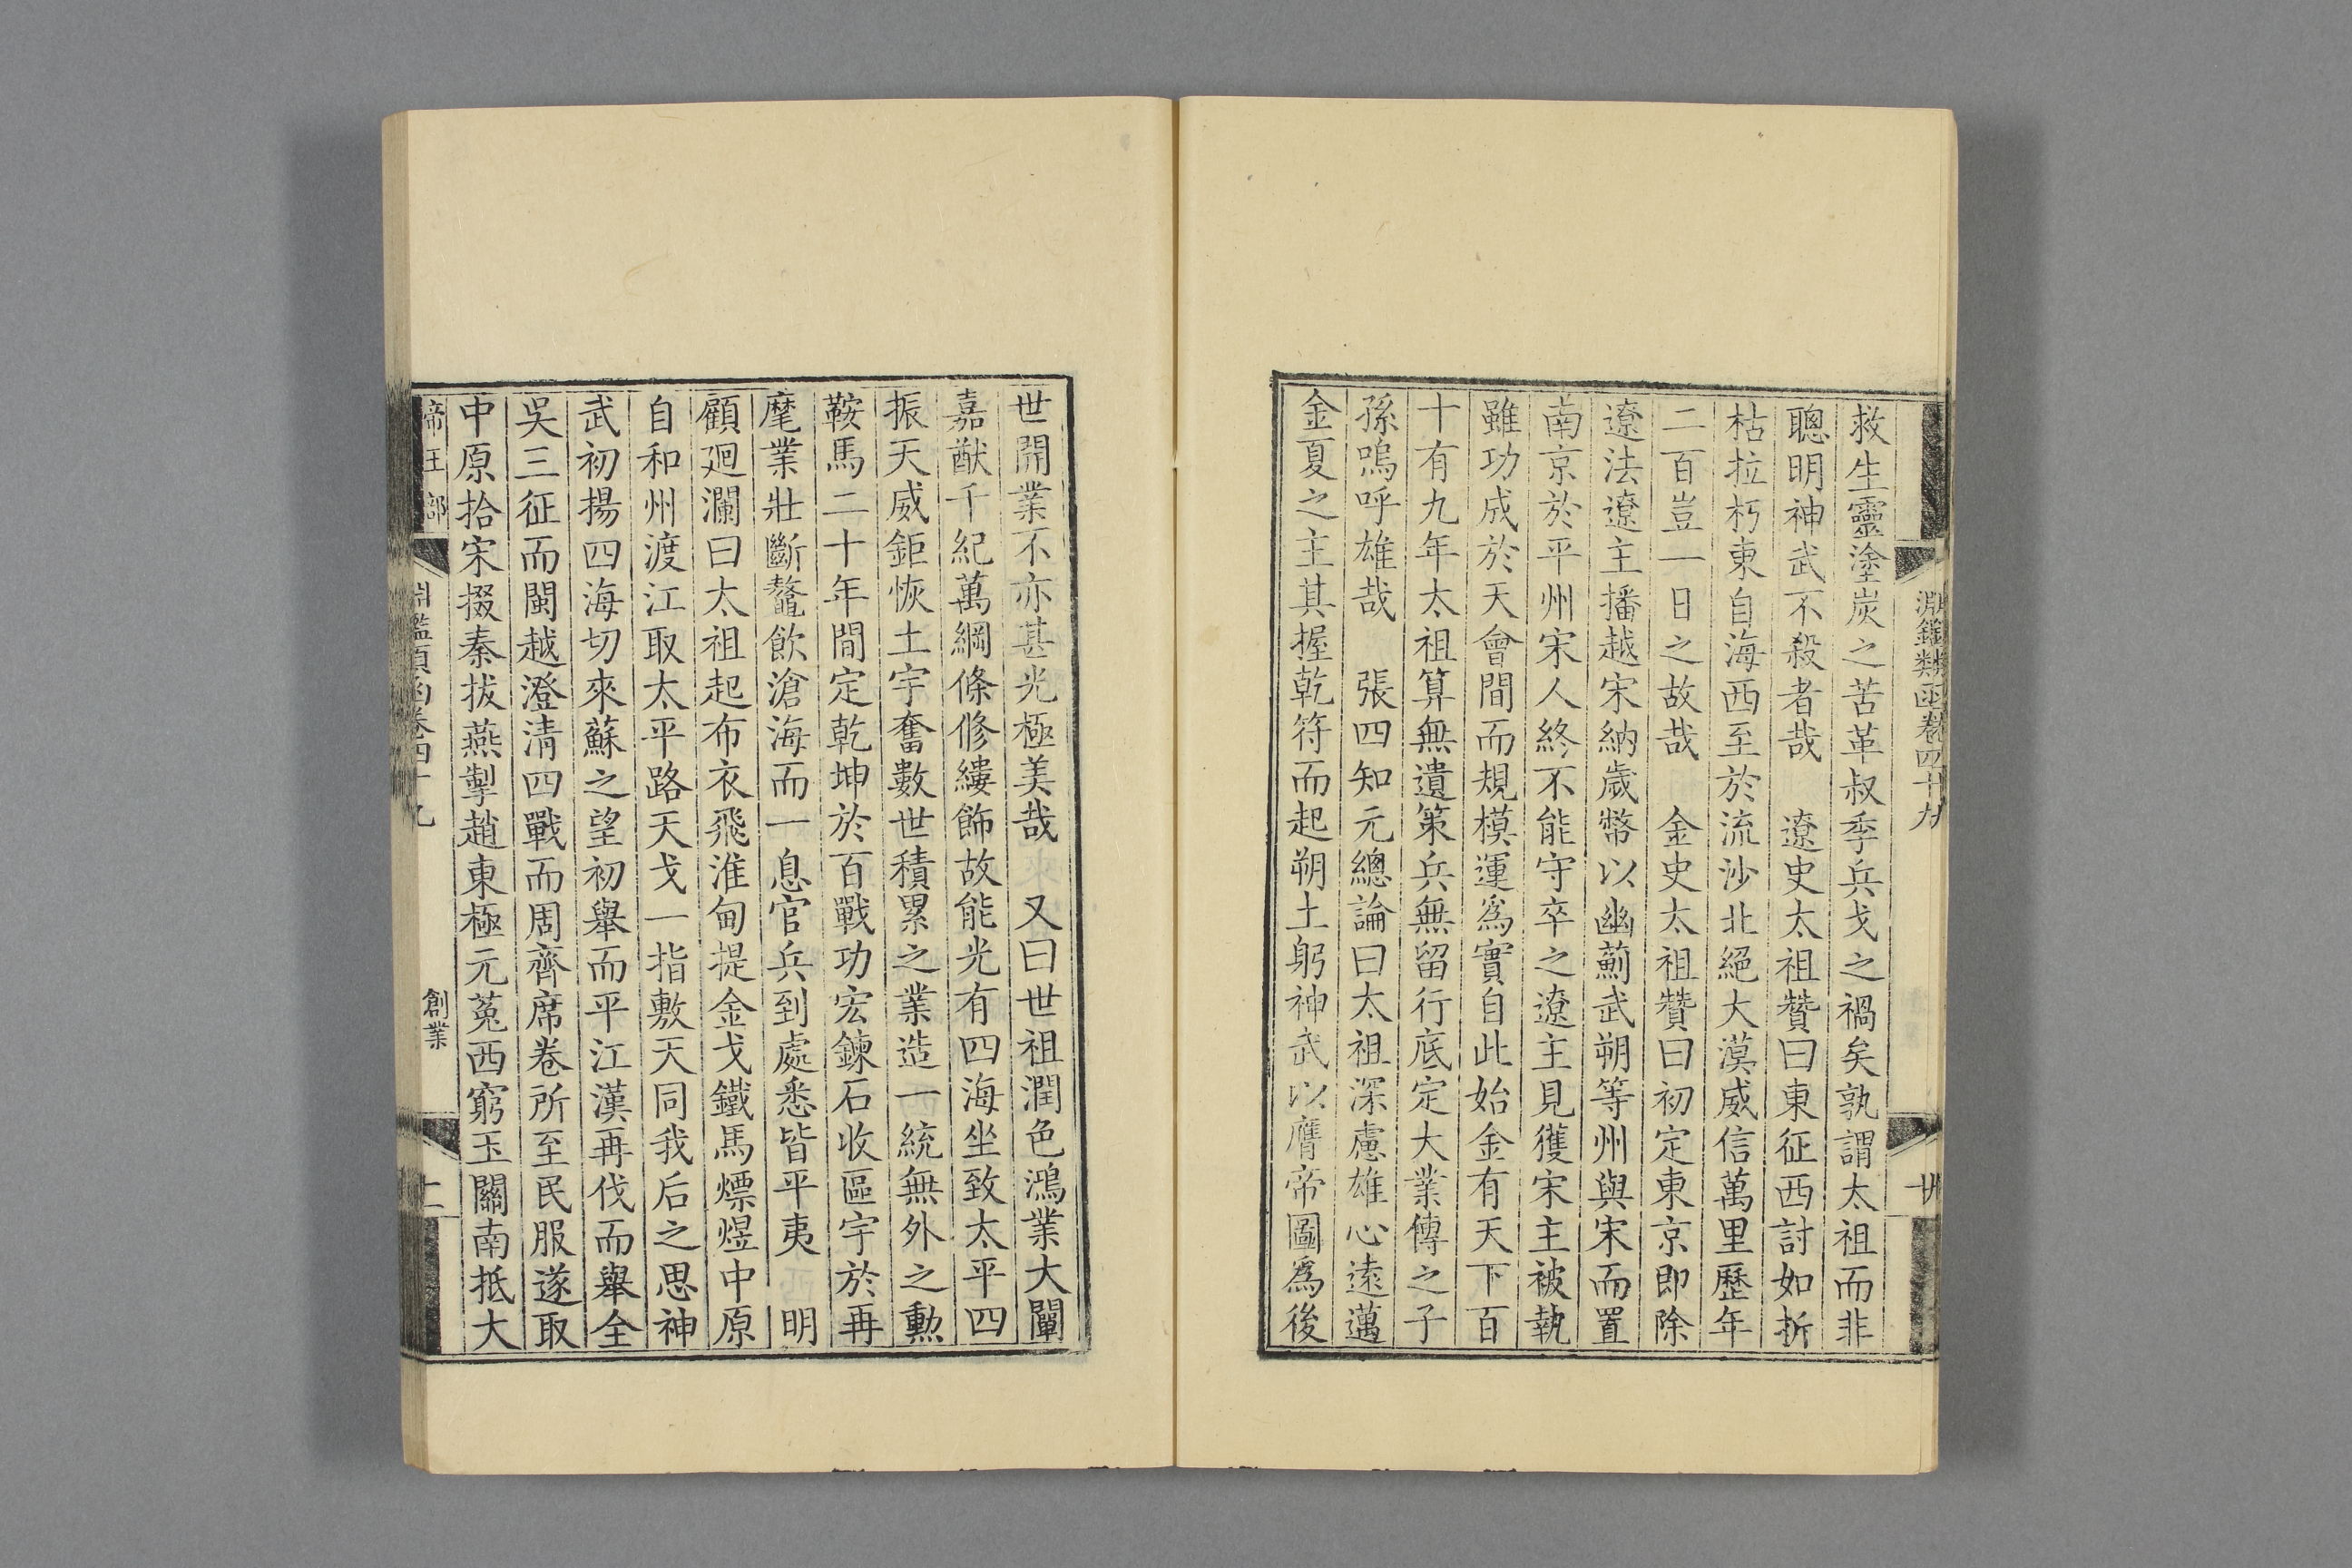 淵鑑類函卷四十九
救生靈塗炭之苦革叔季兵戈之禍矣孰謂太祖而非
聰明神武不殺者哉　遼史太祖贊曰東征西討如折
枯拉朽東自海西至於流沙北絕大漠威信萬里歷年
二百豈一日之故哉　金史太祖贊曰初定東京即除
遼法遼主播越宋納歲幣以幽薊武朔等州與宋而置
南京於平州宋人終不能守卒之遼主見獲宋主被執
雖功成於天會間而規模運爲實自此始金有天下百
十有九年太祖算無遺策兵無留行底定大業傳之子
孫嗚呼雄哉　張四知元總論曰太祖深慮雄心遠邁
金夏之主其握乾符而起朔土躬神武以膺帝圖爲後
世開業不亦甚光極美哉　又曰世祖潤色鴻業大闡
嘉猷千紀萬綱條修縷飾故能光有四海坐致太平四
振天威鉅恢土宇奮數世積累之業造一統無外之勲
鞍馬二十年間定乾坤於百戰功宏鍊石收區宇於再
麾業壯斷鼇飲滄海而一息官兵到處悉皆平夷　明
顧廻瀾曰太祖起布衣飛淮甸提金戈鐵馬熛煜中原
自和州渡江取太平路天戈一指敷天同我后之思神
武初揚四海切來蘇之望初舉而平江漢再伐而舉全
吳三征而閩越澄清四戰而周齊席卷所至民服遂取
中原拾宋掇秦拔燕掣趙東極元菟西窮玉關南抵大
帝王部　淵鑑類函卷四十九　創業